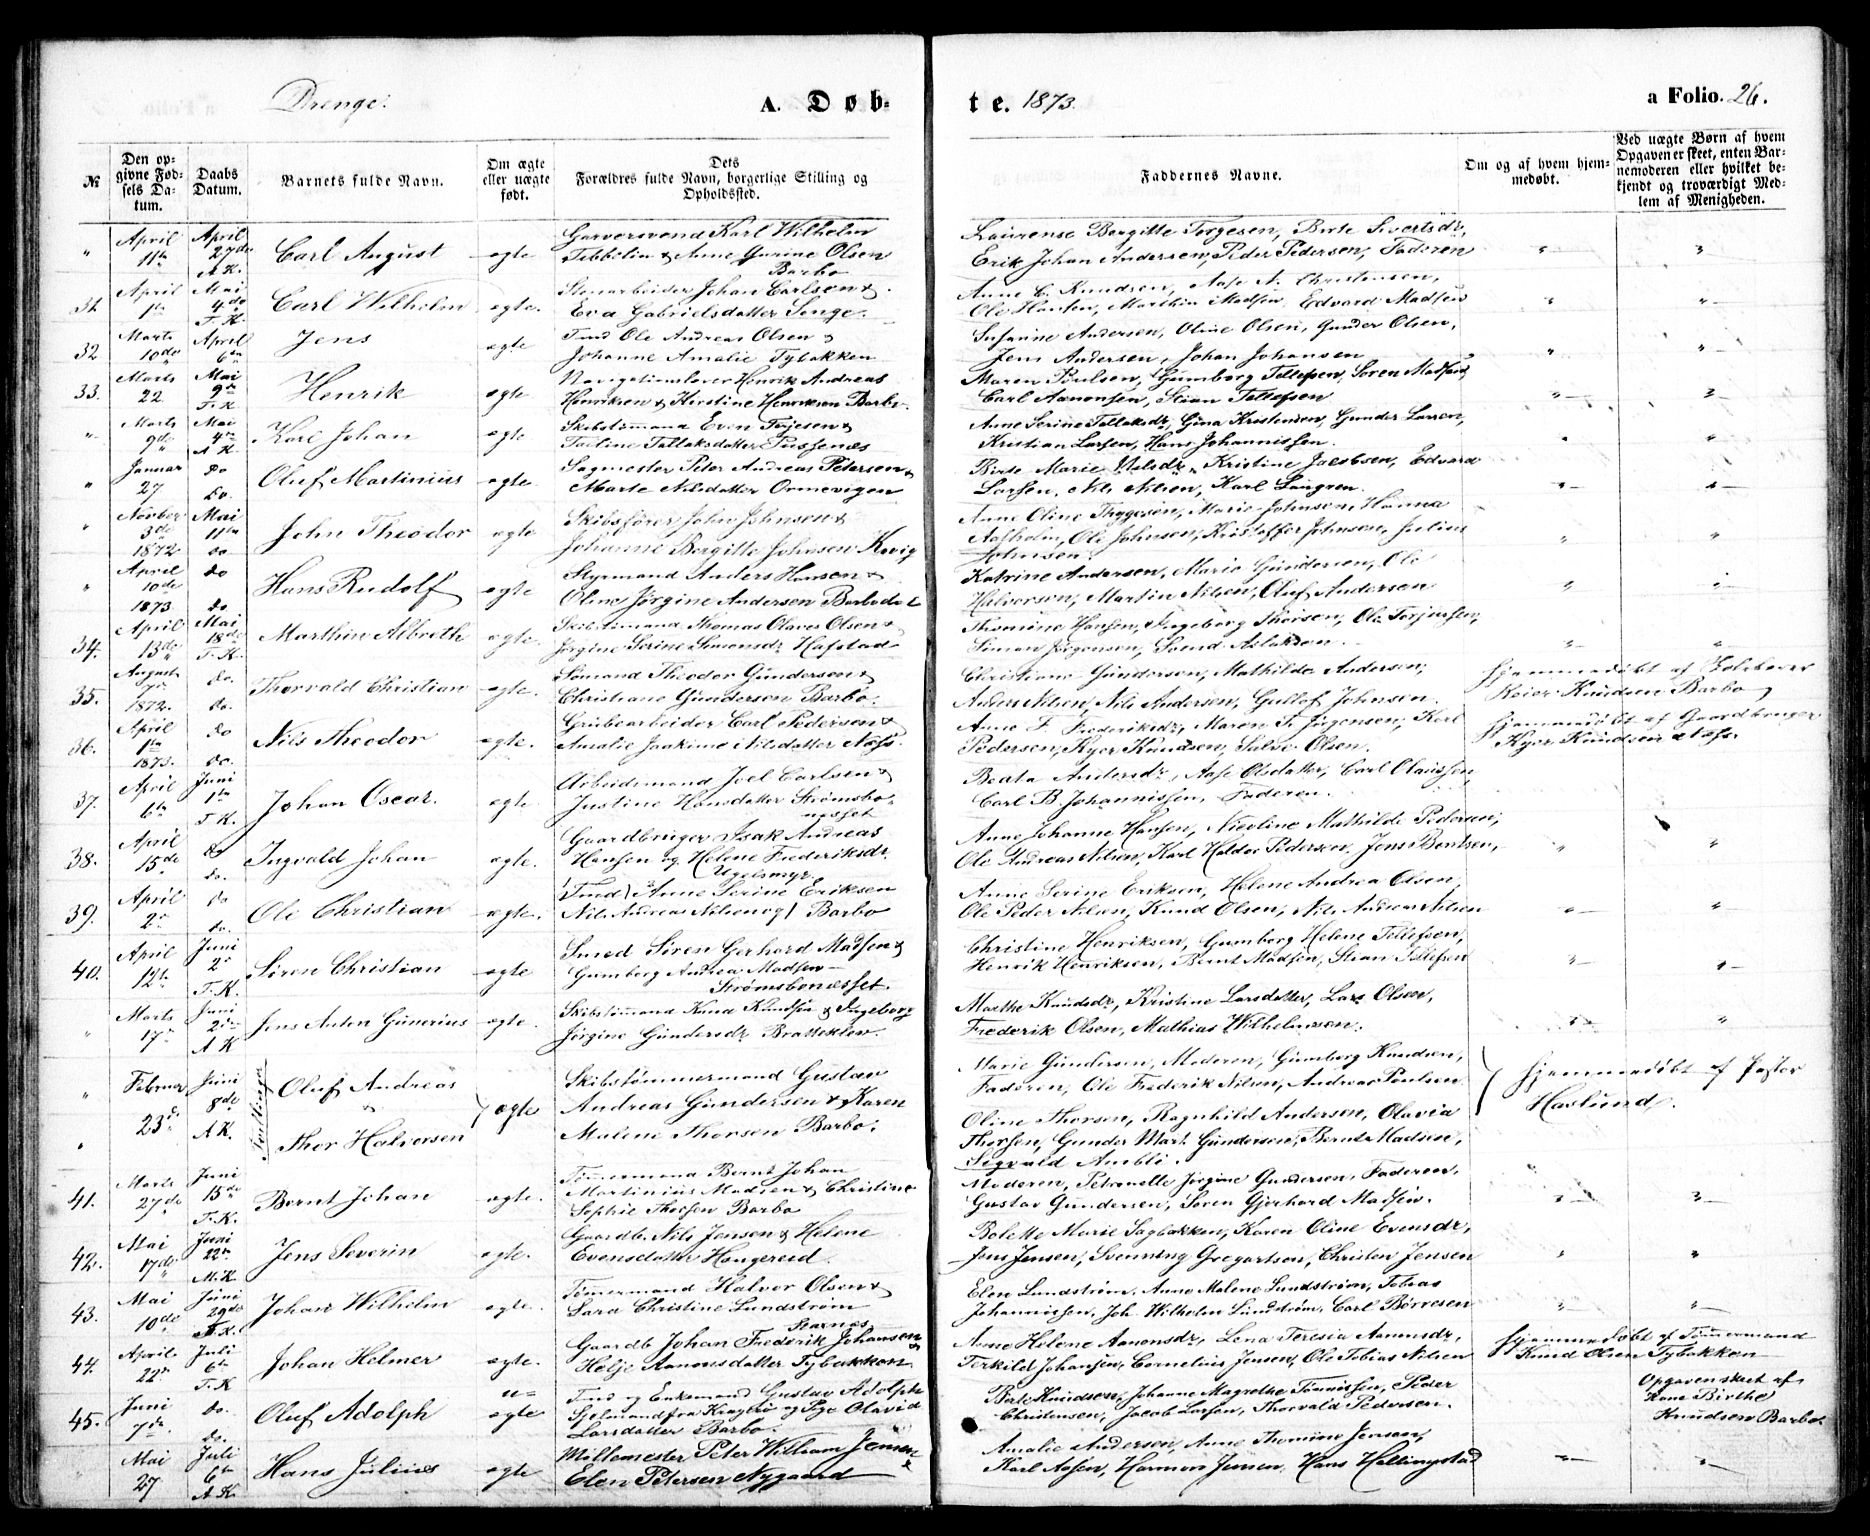 Drenge. A. Døb-
te. 1873. a Folio. 26.
№
Den op-
givne Fød-
sels Da-
tum.
Daabs
Datum.
Barnets fulde Navn.
Om ægte
eller uægte
født.
Dets
Forældres fulde Navn, borgerlige Stilling og
Opholdssted.
Faddernes Navne.
Om og af hvem hjem-
medøbt.
Ved uægte Børn af hvem
Opgaven er skeet, enten Bar-
nemoderen eller hvilket be-
kjendt og troværdigt Med-
lem af Menigheden.
April April Garversvend Karl Wilhelm Laurense Bergitte Torgesen, Birte Sivertsdr,
" 11te 27de Carl August ægte Anne Gurine Olsen Erik Johan Andersen, Peder Pedersen, Faderen " "
A.K. Barbo
April Mai Stenarbeider Johan Carlsen & Anne C. Knudsen, Aase N. Christensen,
31. 1ste 4de Carl Wilhelm ægte. Eva Gabrielsdatter Songe. Edvard Madsen " "
T.K.
Marts April Tmd Ole Andreas Olsen & Susanne Andersen, Oline Olsen, Gunder Olsen,
32 10de 6te Jens ægte Johanne Amalie Tybakken Jens Andersen, Johan Johansen " "
Marts Mai Navigationslærer Henrik Andreas Maren Poulsen, Gumborg Tellefsen, Søren Madsen,
33. 22 9de Henrik ægte Henriksen & Kirstine Henriksen Barbo. Carl Aanonsen, Stian Tellefsen " "
T.K.
Marts Mai Skibstømmand Even Terjesen & Anne Serine Tallaksdr, Gina Kristensen, Gunder Larsen,
" 9de 4de Karl Johan ægte Tallaksdatter Pusnes Kristian Larsen, Hans Johannissen. " "
A.K.
Januar do Sagmester Peter Andreas Petersen & Birte Marie Nilsdr, Kristine Jacobsen, Edvard
" 27 do. Oluf Martinius ægte. Marte Nilsdatter Ormevigen Larsen, Nils Nilsen, Karl Laugren. " "
Novber Mai Skibsfører John Johnsen & Anne Oline Thygesen, Marie Johnsen, Hanna
" 3de 11te John Theodor ægte Johanne Bergitte Johnsen Kovig Aasholm, Ole Johnsen, Kristoffer Johnsen, Julius " "
1872 do Johnsen.
April do Styrmand Anders Hansen & Katrine Andersen, Marie Gundersen, Ole
" 10de Hans Rudolf ægte Oline Jørgine Andersen Barbodal Halvorsen, Martin Nilsen, Oluf Andersen " "
1873 do
April Mai Skibstømmand Thomas Olaves Olsen & Thomine Hansen, Ingeborg Thorsen, Ole Torjussen,
34. 13de 18de Marthin Albreth ægte. Jørgine Serine Simonsdr Hafstad Simon Jørgensen, Svend Aslaksen. " "
T.K.
August do. Sømand Theodor Gundersen & Christiane Gundersen, Mathilde Andersen, Hjemmedøbt af
35. 7de Thorvald Christian ægte. Christiane Gundersen Barbo. Anders Nilsen, Nils Andersen, Gullof Johnsen. Knudsen Barbo
1872. do.
April do Grubearbeider Carl Pedersen & Anne F. Frederiksdr, Maren F. Jørgensen, Karl Hjemmedøbt af Gaardbruger
36. 1ste Nils Theodor ægte. Amalie Joakime Nilsdatter Næss. Pedersen, Kjøer Knudsen, Salve Olsen. Kjøer Knudsen Næss
1873. do.
April Juni Arbeidsmand Joel Carlsen & Beata Andersdr, Aase Olsdatter, Carl Olaussen,
37. 6te 1ste Johan Oscar. ægte Justine Hansdatter Strømsbo- Carl B. Johannissen, Faderen.
T.K. næsset
April do Gaardbruger Isak Andreas Anne Johanne Hansen, Nicoline Mathilde Pedersen,
38. 15de do. Ingvald Johan ægte. Hansen og Helene Frederiksdr. Ole Andreas Nilsen, Karl Haldor Pedersen, Jens Bentsen, " "
Ugelsmyr
April do (Tmd) Anne Serine Eriksen Anne Serine Eriksen, Helene Andrea Olsen,
39. 2de do. Ole Christian ægte. Nils Andreas Nilsen og) Barbo Ole Peder Nilsen, Knud Olsen, Nils Andreas Nilsen " "
April Juni Smed Søren Gerhard Madsen & Christine Henriksen, Gumborg Helene Tellefsen,
40. 12te 2de Søren Christian ægte Gumborg Andrea Madsen Henrik Henriksen, Bernt Madsen, Stian Tellefsen " "
T.K. Strømsbonæsset.
Marts Juni Skibstømmand Knud Knudsen & Ingeborg Marthe Knudsdr, Kristine Larsdatter, Lars Olsen,
" 17de 2den Jens Anton Gunerius ægte. Jørgine Gundersdr Bratteklev. Frederik Olsen, Mathias Wilhelmsen. " "
A.K
Februar Juni Oluf Andreas Skibstømmermand Gustav Marie Gundersen, Moderen, Gumborg Knudsen,
" 23de 8de Tvillinger ægte Andreas Gundersen & Karen Faderen, Ole Frederik Nilsen, Andreas Poulsen. Hjemmedøbt af Pastor
" A.K. Thor Halvorsen Malene Thorsen Barbo. Oline Thorsen, Ragnhild Andersen, Olavia Haslund.
Thorsen, Gunder Mart. Gundersen, Bernt Madsen,
Sigvald Amble.
Marts Juni Tømmermand Bernt Johan Moderen, Petronelle Jørgine Gundersen, Faderen,
41. 27de 15de Bernt Johan ægte. Martinius Madsen & Christine Gustav Gundersen, Søren Gjerhard Madsen. " "
T.K. Sophie Thorsen Barbo
Mai Juni Gaardb. Nils Jensen & Helene Bolette Marie Sagbakken, Karen Oline Evensdr,
42. 17de 22de Jens Severin ægte. Evensdatter Hangereid. Jens Jensen, Svenning Gregertsen, Christen Jensen " "
M.K.
Mai Juni Tømermand Halvor Olsen & Elen Lundstrøm, Anne Malene Lundstrøm, Tobias
43. 10de 29de Johan Wilhelm ægte. Sara Christine Lundstrøm Johannissen, Joh. Wilhelm Lundstrøm, Carl Børresen " "
April Juli Gaardb Johan Frederik Johansen & Anne Helene Aanonsdr, Lena Teresia Aanonsdr, Hjemmedøbt af Tømmermand
44. 22de 6te Johan Helmer ægte. Helje Aanonsdatter Tybakken Terkild Johansen, Cornelius Jensen, Ole Tobias Nilsen Knud Olsen Tybakken
T.K
Juni do. u= Tmd og Enkemand Gustav Adolph Berte Knudsen, Johanne Magrethe Tønnissen, Peder Opgaven skeet af
45. 7de Oluf Adolph ægte fra Kragerø og Pige Olavia Christensen, Jacob Larsen, Thorvald Pedersen. Kone Birthe
do. Larsdatter Barbo. Knudsen Barbo
Mai Juli Møllemester Peter William Jensen & Amalie Andersen, Anne Thomine Jensen,
27 6te Hans Julius ægte Elen Petersen Nygaard Karl Aasen, Harman Jensen, Hans Hellingstad " "
A.K